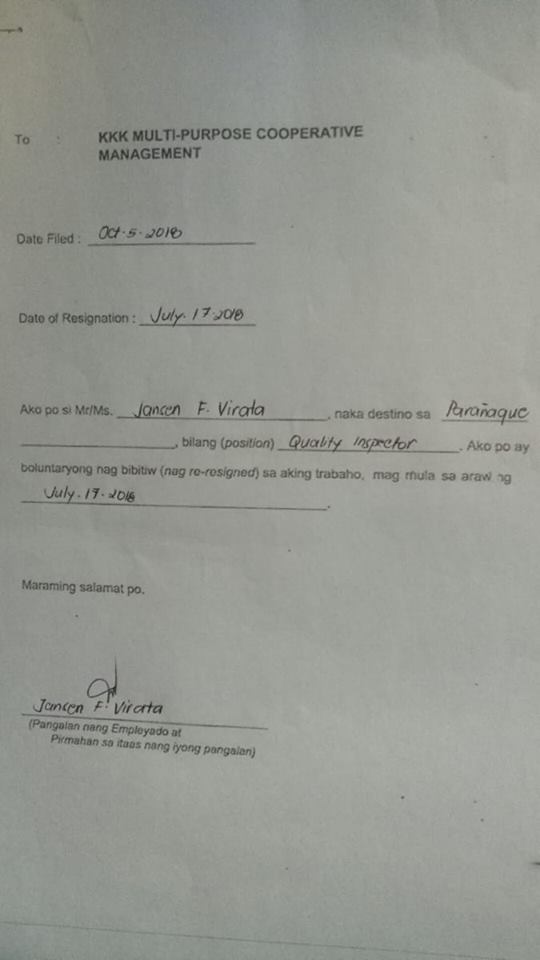 To : KKK MULTI-PURPOSE COOPERATIVE
MANAGEMENT
Date Filed : Oct. 5. 2018
Date of Resignation : July. 17. 2018
Ako po si Mr/Ms. Jansen F. Virata, naka destino sa Parañaque
, bilang (position) Quality Inspector. Ako po ay
boluntaryong nag bibitiw (nag re-resigned) sa aking trabaho, mag mula sa araw ng
July. 17. 2018.
Maraming salamat po.
Jansen F. Virata
(Pangalan nang Empleyado at
Pirmahan sa itaas nang iyong pangalan)